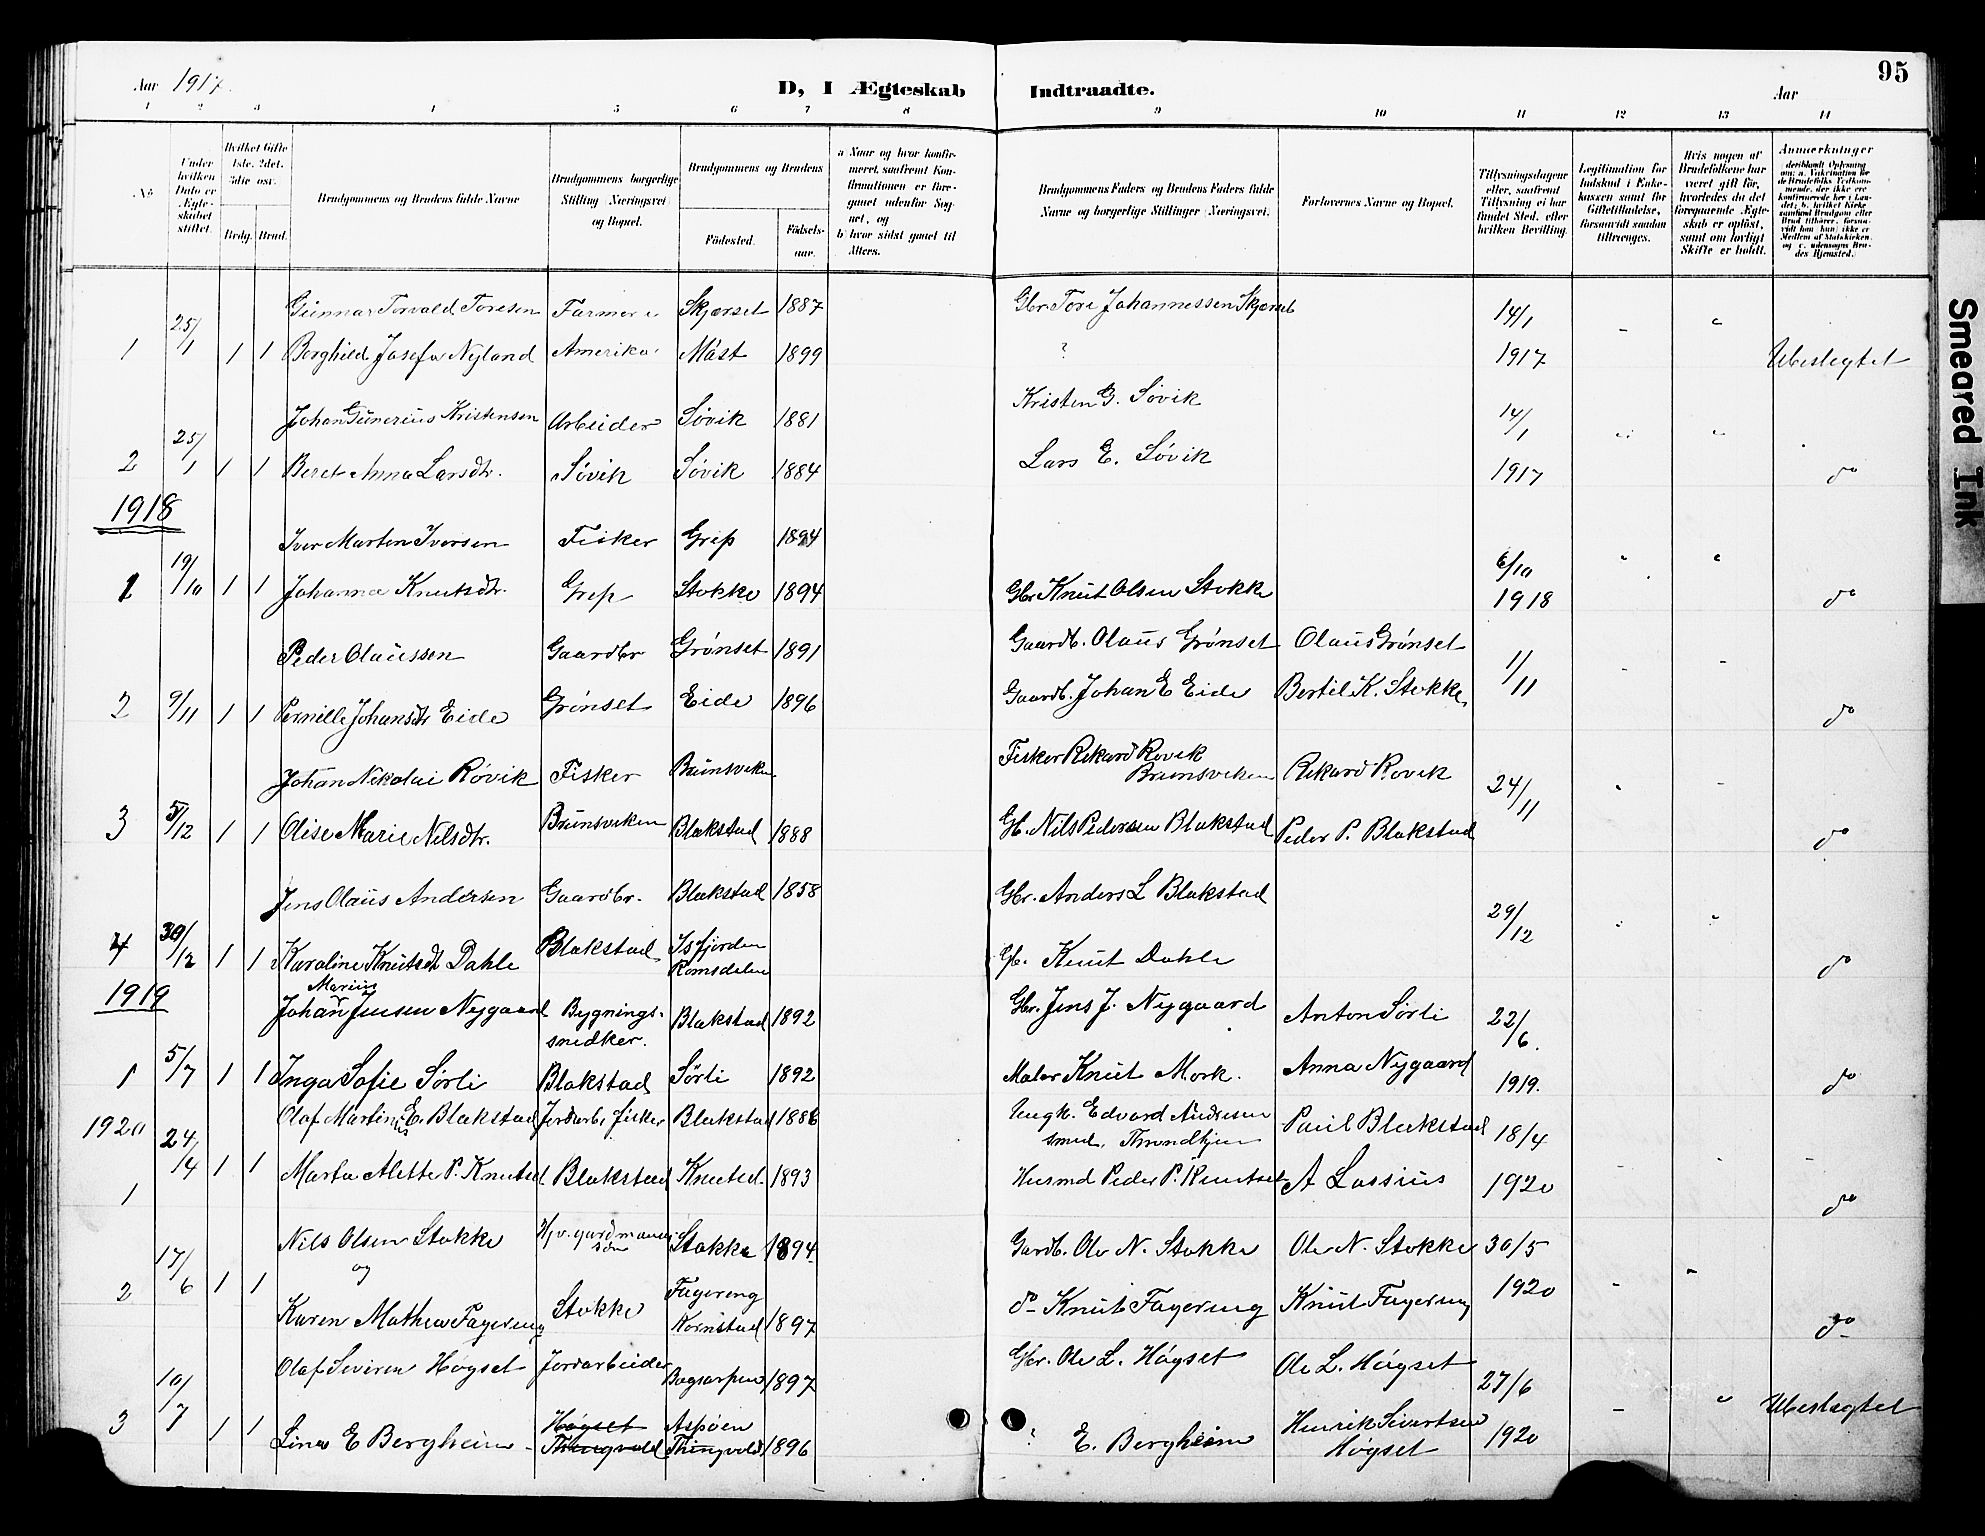 95
Aar 1917.
D, I Ægteskab Indtraadte.
Aar
1 2 3 4 5 6 7 8 9 10 11 12 13 14
No.
Under hvilken Dato er Ægteskabet stiftet.
Hvilket Gifte 1ste, 2det, 3die osv.
Brdg. Brud.
Brudgommens og Brudens fulde Navne
Brudgommens borgerlige Stilling (Næringsvei) og Bopæl.
Brudgommens og Brudens
Fødested.
Fødselsaar.
a Naar og hvor konfirmeret, saafremt Konfirmationen er foregaaet udenfor Sognet, og
b) hvor sidst gaaet til Alters.
Brudgommens Faders og Brudens Faders fulde Navne og borgerlige Stillinger (Næringsvei).
Forlovernes Navne og Bopæl.
Tillysningsdagene eller, saafremt Tillysning ei har fundet Sted, efter hvilken Bevilling.
Legitimation for Indskud i Enkekassen samt for Giftetilladelse, forsaavidt saadan tiltrænges.
Hvis nogen af Brudefolkene har været gift før, hvorledes da det foregaaende Ægteskab er opløst, samt om lovligt Skifte er holdt.
Anmærkninger
Gunnar Torvald Toresen Farmer i Skjærset 1887 Gbr. Tore Johannessen Skjærset 14/1
1 25/1 1 1 Borghild Josefa Nyland Amerika Måst 1899 ? 1917 Ubeslegtet
Johan Gunerius Kristensen Arbeider Søvik 1881 Kristen G. Søvik 14/1
2 25/1 1 1 Beret Anna Larsdtr. Søvik Søvik 1884 Lars E. Søvik 1917 do
1918
Iver Marten Iversen Fisker Grip 1894 6/10
1 19/10 1 1 Johanna Knutsdtr. Grip Stokke 1894 Gbr Knut Olsen Stokke 1918 do
Peder Olaussen Gaardbr Grønset 1891 Gaardb. Olaus Grønset Olaus Grønset 1/11
2 9/11 1 1 Pernille Johansdtr Eide Grønset Eide 1896 Gaardb. Johan E Eide Bertil K. Stokke do
Johan Nikolai Røvik Fisker Brunsviken Fisker Rikard Rovik Brunsviken Rikard Rovik 24/11
3 5/12 1 1 Olise Marie Nilsdtr. Brunsviken Blakstad 1888 Gb. Nils Pedersen Blakstad Peder P. Blakstad do
Jens Olaus Andersen Gaardbr. Blakstad 1858 Gbr. Anders L Blakstad 29/12
4 30/12 1 1 Karoline Knutsdt Dahle Blakstad Isfjorden Romsdalen Gb. Knut Dahle do
1919
Marius
Johan Jensen Nygaard Bygningssnedker. Blakstad 1892 Gbr. Jens J. Nygaard Anton Sørli 22/6.
1 5/7 1 1 Inga Sofie Sørli Blakstad Sørli 1892 Maler Knut Mork. Anna Nygaard 1919. do
1920
Olaf Martinius E. Blakstad Jordarb. fisker Blakstad 1886 Ungk. Edvard Andresen smed, Trondhjem Paul Blakstad 18/4
1 24/4 1 1 Marta Alette P. Knutsd Blakstad Knutsd. 1893 Husmd Peder P. Knutset A Lassius 1920 do
Nils Olsen Stokke Hjv. gardmannssøn Stokke 1894 Gardb. Ole N. Stokke Ole N. Stokke 30/5
og
2 17/6 1 1 Karen Mathea Fagereng Stokke Fagereng Kornstad 1897 do Knut Fagereng Knut Fagereng 1920 do
Olaf Severen Høgset Jordarbeider 1897 Gbr. Ole L. Høgset Ole L. Høgset 27/6
3 10/7 1 1 Lina E Bergheim Høgset Thingvold Aspøen Thingvold 1896 ? E. Bergheim Henrik Sivertsen Høgset 1920 Ubeslegtet
Smeared Ink